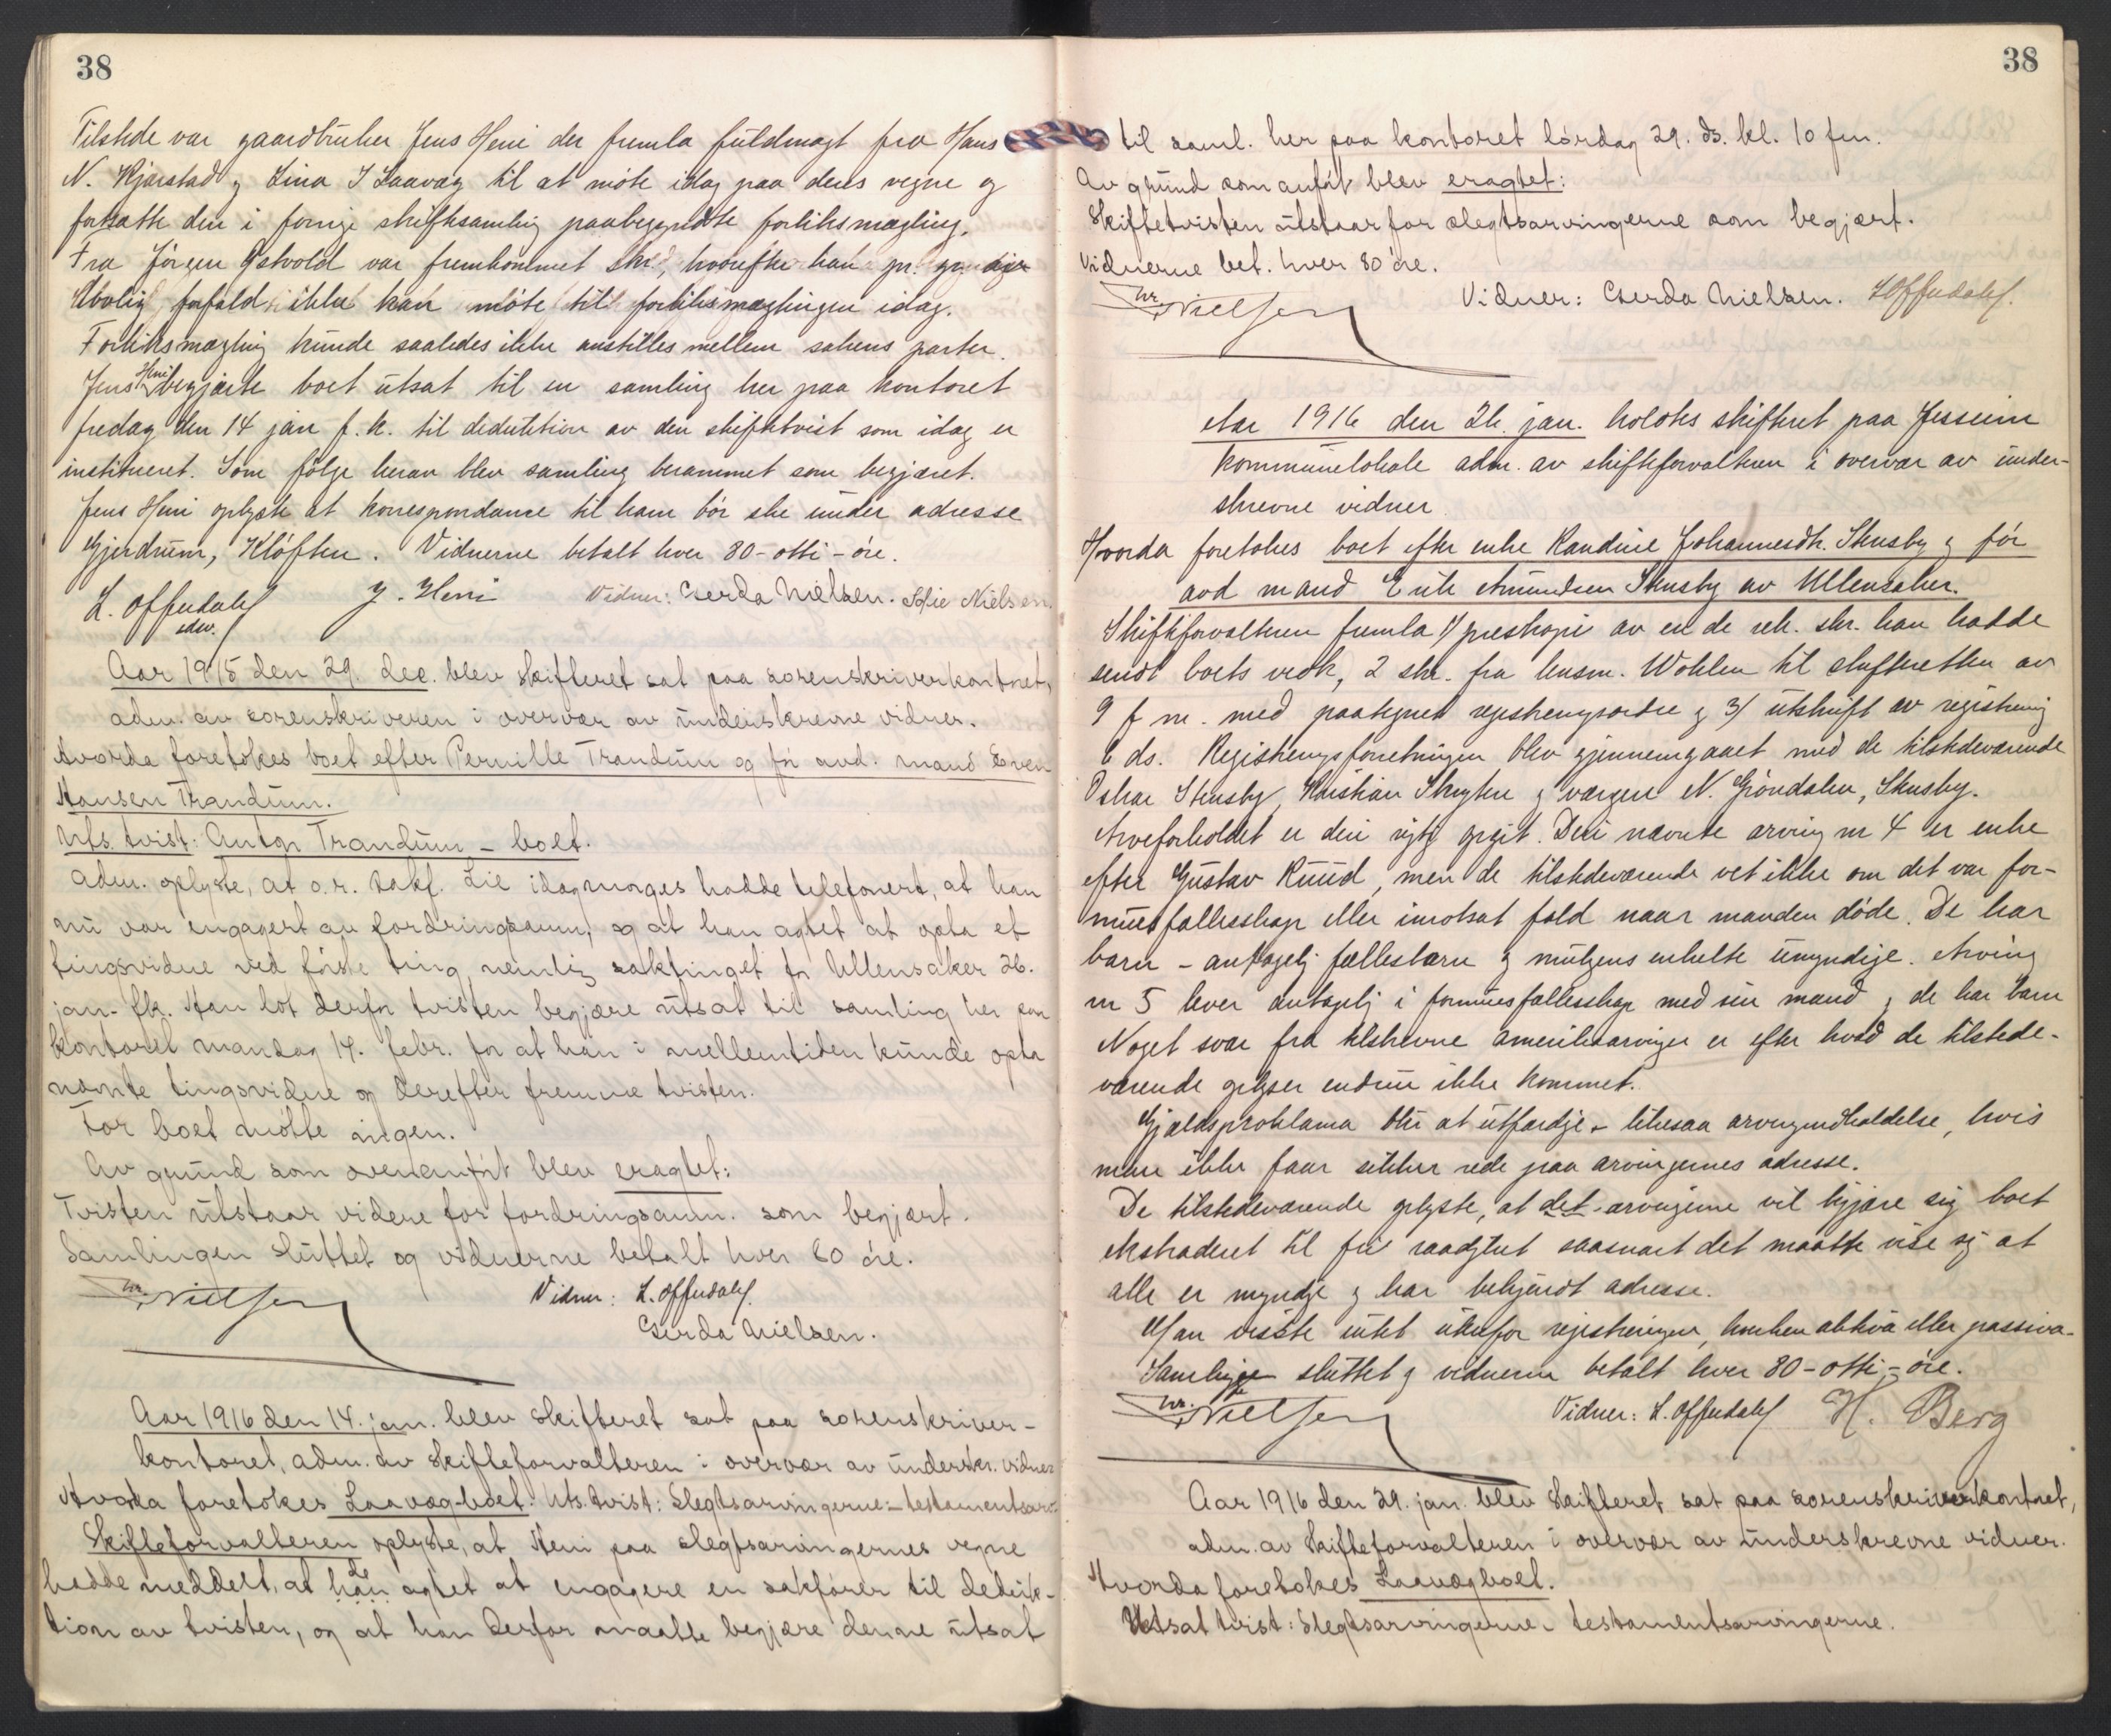 38
Tilstede var gaardbruker Jens Heni der fremla fuldmagt fra Hans
N. Kjærstad og Lina J Laavæg til at møte idag paa deres vegne og
fortsatte den i forrige skiftesamling paabegyndte forliksmægling.
Fra Jørgen Østvold var fremkommet skr., hvorefter han pr.
forfald ikke kan møte til forliksmæglingen idag.
Forliksmægling kunde saaledes ikke anstilles mellem sakens parter.
Jens Heni begjærte boet utsat til en samling her paa kontoret
fredag den 14 jan f. k. til deduktion av den skiftetvist som idag er
institueret. Som følge herav blev samling berammet som begjæret.
Jens Heni oplyste at korrespondance til ham bør ske under adresse
Gjerdrum, Kløften. Vidnerne betalt hver 80 - otti - øre.
L. Offerdahl J. Heni Vidner: Gerda Nielsen. Sofie Nielsen.
adv.
Aar 1915 den 29. dec. blev skifteret sat paa sorenskriverkontoret,
adm. av sorenskriveren i overvær av underskrevne vidner.
Hvorda foretokes boet efter Pernille Trandum og før avd. mand Even
Hansen Trandum.
Uts. tvist: Anton Trandum - boet.
Adm. oplyste, at o.r. sakf. Lie idagmorges hadde telefonert, at han
nu var engagert av fordringsanm., og at han agtet at opta et
tingsvidne ved første ting, nemlig saktinget for Ullensaker 26.
jan. fk. Han lot derfor tvisten begjære utsat til samling her paa
kontoret mandag 14. febr. for at han i mellemtiden kunde opta
nævnte tingsvidne og derefter fremme tvisten.
For boet møtte ingen.
Av grund som ovenanført blev eragtet:
Tvisten utstaar videre for fordringsanm. som begjært.
Samlingen sluttet og vidnerne betalt hver 80 øre.
Nielsen Vidner: L. Offerdahl.
Gerda Nielsen.
Aar 1916 den 14. jan. blev skifteret sat paa sorenskriver-
kontoret, adm. av skifteforvalteren i overvær av underskr. vidner
Hvorda foretokes Laavæg-boet. Uts. tvist: Slegtsarvingerne - testamentsarv.
Skifteforvalteren oplyste, at Heni paa slegtsarvingernes vegne
hadde meddelt, at han de agtet at engagere en sakfører til deduk-
tion av tvisten, og at han derfor maatte begjære denne utsat
38
til saml. her paa kontoret lørdag 29. ds. kl. 10 fm.
Av grund som anført blev eragtet:
Skiftetvisten utstaar for slegtsarvingerne som begjært.
Vidnerne bet. hver 80 øre.
Nielsen Vidner: Gerda Nielsen. L Offerdahl.
Aar 1916 den 26. jan. holdtes skifteret paa Jessheim
kommunelokale adm. av skifteforvalteren i overvær av under-
skrevne vidner
Hvorda foretokes boet efter enke Randine Johannesdtr. Stensby og før
avd mand Erik Amundsen Stensby av Ullensaker.
Skifteforvalteren fremla 1/ preskopi av en de rek. skr. han hadde
sendt boets vedk., 2 skr. fra lensm. Wohlen til skifteretten av
9 f m. med paategnet registreringsordre og 3/ utskrift av registrering
6 ds. Registreringsforretningen blev gjennemgaaet med de tilstedeværende
Oskar Stensby, Kristian Skryten og værgen N. Grøndalen, Stensby.
Arveforholdet er deri rigtig opgit. Den nævnte arving nr 4 er enke
efter Gustav Ruud, men de tilstedeværende vet ikke om det var for-
muesfællesskap eller imotsat fald naar manden døde. De har
barn - antagelig fællesbarn og muligens enkelte umyndige. Arving
nr 5 lever antagelig i formuesfællesskap med sin mand og de har barn
Noget svar fra tilskrevne amerikaarvinger er efter hvad de tilstede-
værende oplyser endnu ikke kommet.
Gjældsproklama blir at utfærdige - likesaa arvingindkaldelse, hvis
man ikke faar sikker rede paa arvingernes adresse.
De tilstedeværende oplyste, at det arvingerne vil begjære sig boet
ekstraderet til fri raadighet saasnart det maatte vise sig at
alle er myndige og har bekjendt adresse.
Man visste intet utenfor registreringen, hverken aktiva eller passiva.
Samlingen sluttet og vidnerne betalt hver 80 - otti - øre.
Nielsen Vidner: L. Offerdahl H. Berg
Aar 1916 den 29. jan. blev skifteret sat paa sorenskriverkontoret,
adm. av skifteforvalteren i overvær av underskrevne vidner.
Hvorda foretokes Laavægboet.
Utsat tvist: Slegtsarvingerne - testamentsarvingerne.